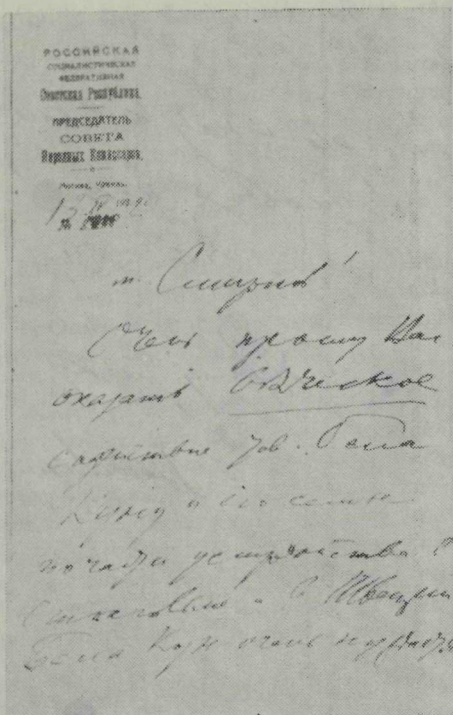 РОССИЙСКАЯ
СОЦИАЛИСТИЧЕСКАЯ
ФЕДЕРАТИВНАЯ
Советская Республика.
ПРЕДСЕДАТЕЛЬ
СОВЕТА
Народных Комиссаров.
Москва, Кремль.
т. Смирнов!
Очень прошу Вас
оказать всяческое
содействие тов. Бела
Куну и его семье
по части устройства в
и в Швеции
Бела Кун очень